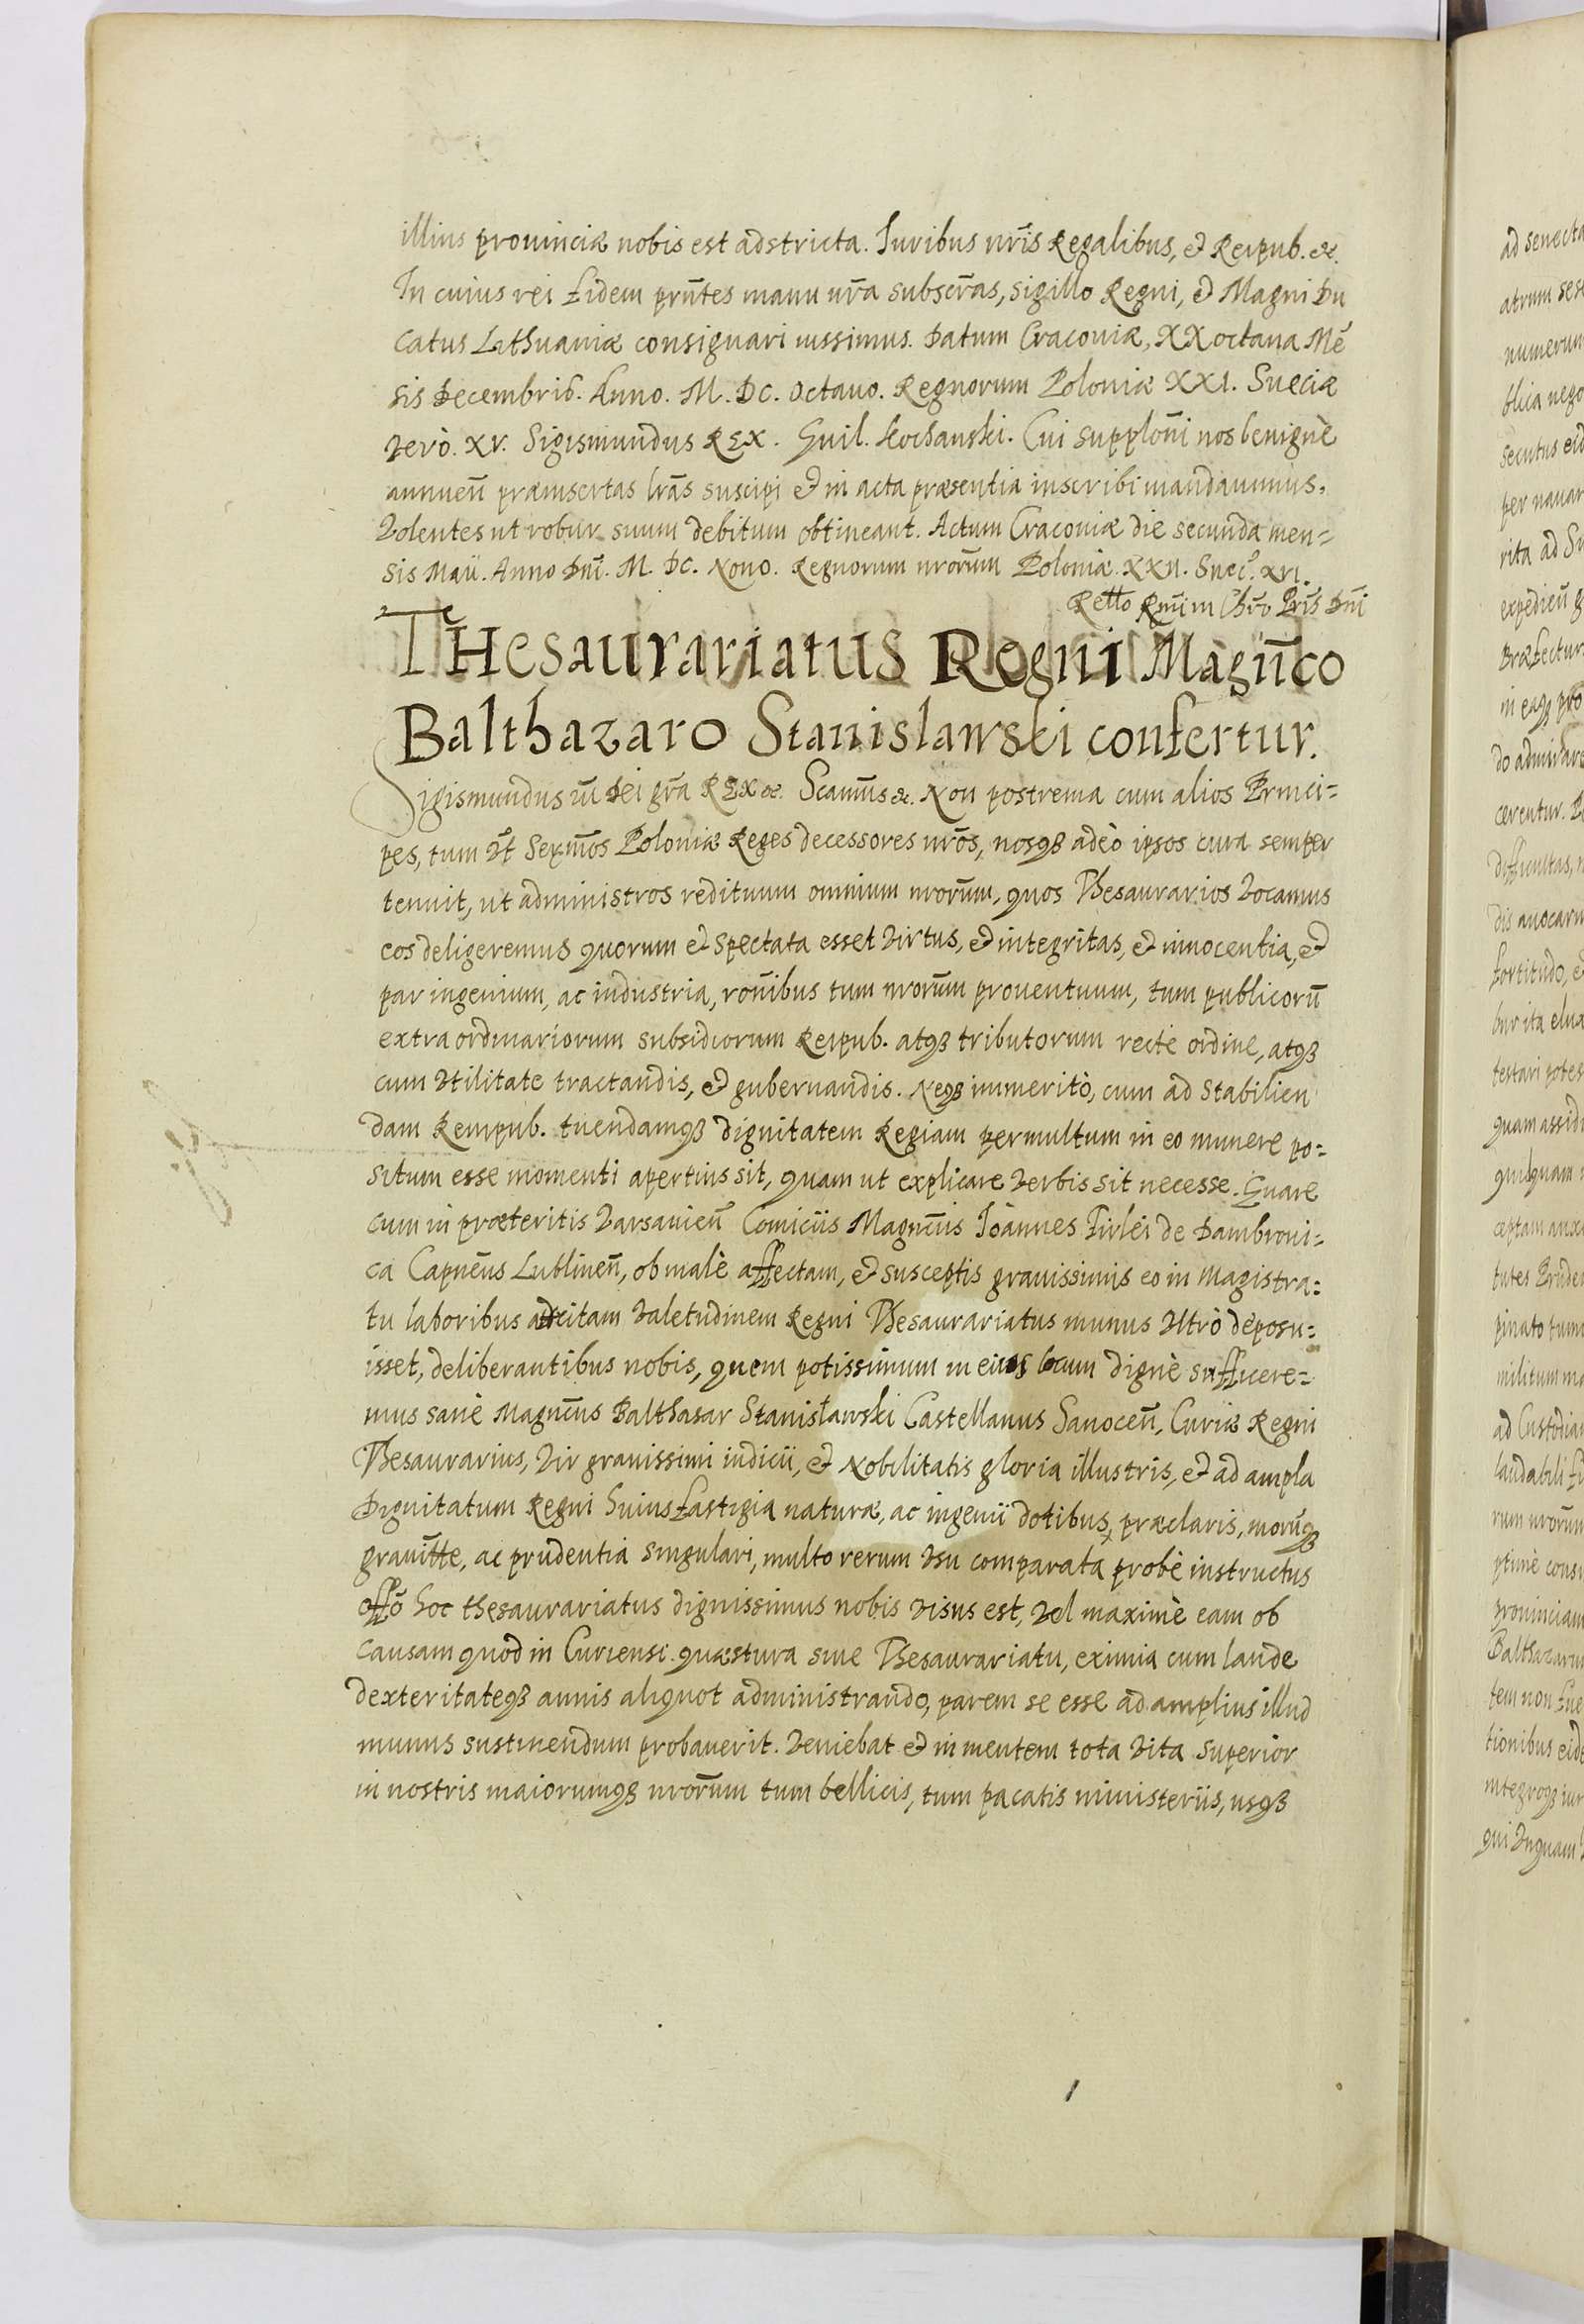 illius prouinciæ nobis est adstricta. Iuribus nr̃is Regalibus, et Reipub. etc.
In cuius rei fidem prñtes manu nr̃a subscr̃as, sigillo Regni, et Magni Du
catus Lithuaniæ consignari iussimus. Datum Cracouiæ, XX octaua Mẽ
sis Decembris. Anno. M. DC. Octauo. Regnorum Poloniæ XXI. Sueciæ
verò. XV. Sigismundus REX. Guil. Kochanski. Cui supplõni nos benignè
annueñ præinsertas lr̃as suscipi et in acta præsentia inscribi mandauimus.
Volentes ut robur suum debitum obtineant. Actum Cracouiæ die secunda men=
sis Maii. Anno Dñi. M. DC. Nono. Regnorum nrorũm Poloniæ. XXII. Suec. XVI.
Retto Rmĩ in Chrõ Pris Dñi
THesaurariatus Regni Magñco
Balthazaro Stanislawski confertur.
Sigismundus iii Dei grã REX etc. Scamũs etc. Non postrema cum alios Princi=
pes, tum et Serm̃os Poloniæ Reges decessores nrõs, nosq3 adeò ipsos cura semper
tenuit, ut administros redituum omnium nrorũm, quos Thesaurarios vocamus
eos deligeremus quorum et spectata esset virtus, et integritas, et innocentia, et
par ingenium, ac industria, roñibus tum nrorũm prouentuum, tum publicorũ
extraordinariorum subsidiorum Reipub. atq3 tributorum recte ordine, atq3
cum utilitate tractandis, et gubernandis. Neq3 immeritò, cum ad stabilien
dam Rempub. tuendamq3 dignitatem Regiam permultum in eo munere po=
situm esse momenti apertius sit, quam ut explicare verbis sit necesse. Quare
cum in præteritis Varsauieñ Comiciis Magncũs Ioannes Firlei de Dambroui=
ca Capnẽus Lublineñ, ob malè affectam, et susceptis grauissimis eo in Magistra=
tu laboribus attritam valetudinem Regni Thesaurariatus munus ultrò deposu=
isset, deliberantibus nobis, quem potissimum in eius locum dignè sufficere=
mus sanè Magncũs Balthasar Stanisławski Castellanus Sanoceñ, Curiæ Regni
Thesaurarius, vir grauissimi iudicii, et Nobilitatis gloria illustris, et ad ampla
Dignitatum Regni huius fastigia naturæ, ac ingenii dotibus, præclaris, morũq3
grauitte, ac prudentia singulari, multo rerum usu comparata, probè instructus
offõ hoc thesaurariatus dignissimus nobis visus est, vel maximè eam ob
causam quod in Curiensi quæstura siue Thesaurariatu, eximia cum laude
dexteritateq3 annis aliquot administrando, parem se esse ad amplius illud
munus sustinendum probauerit. Veniebat et in mentem tota vita superior
in nostris maiorumq3 nrorũm tum bellicis, tum pacatis ministeriis, usq3